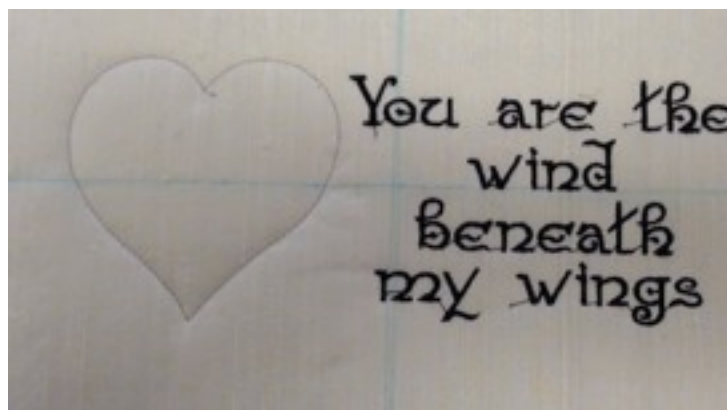 You are the
wind
beneath
my wings